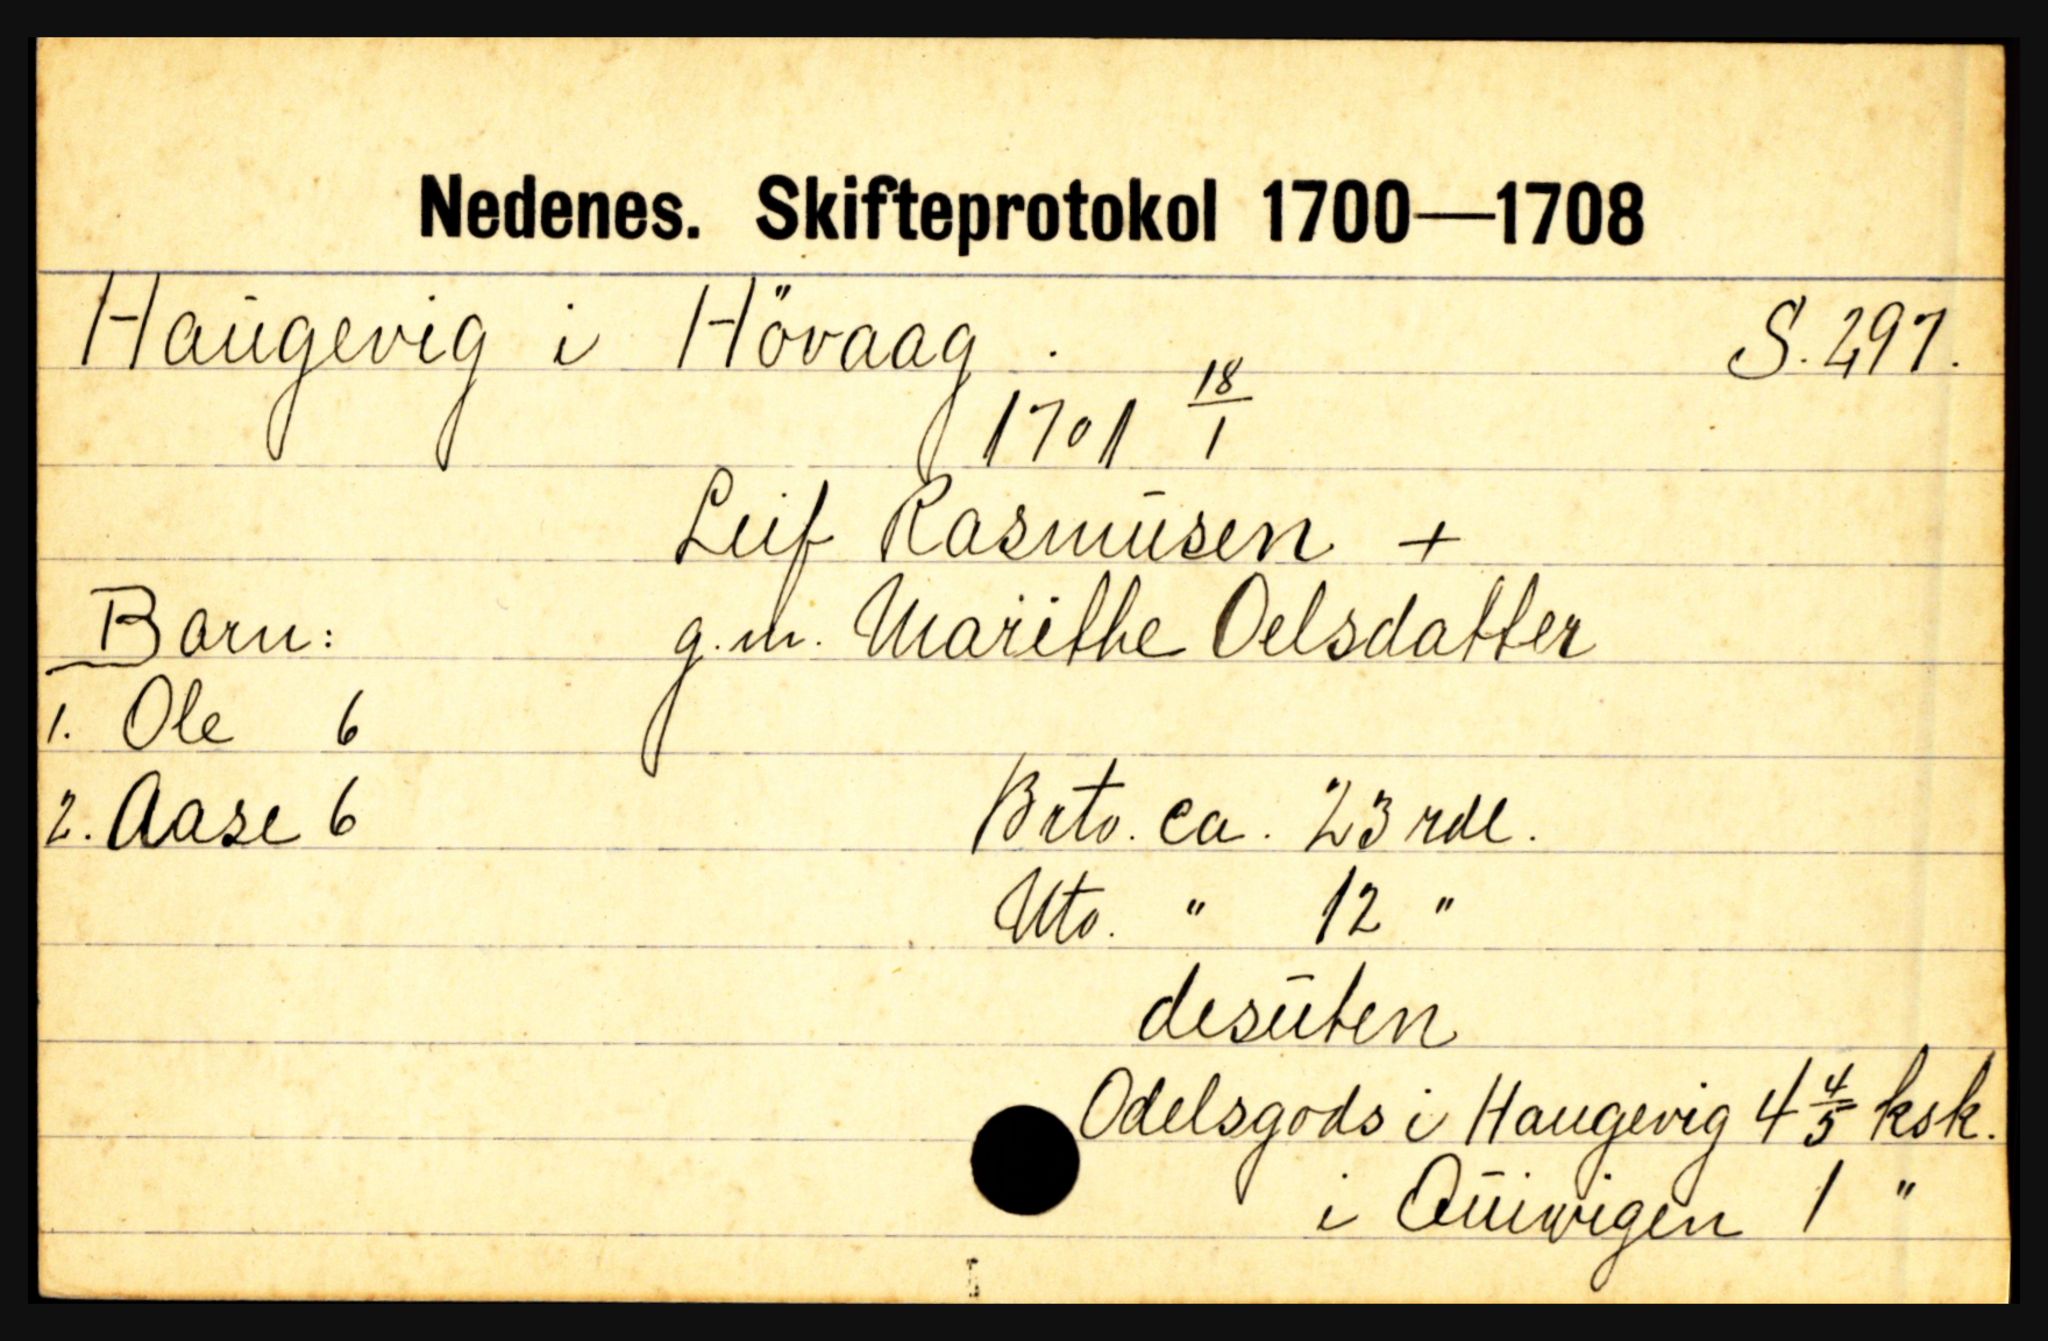 Nedenes. Skifteprotokol 1700—1708
Haugevig i Hövaag. S. 297.
1701 18/1
Leif Rasmusen +
g.m. Marithe Oelsdatter
Barn:
1. Ole 6
2. Aase 6
Brto. ca. 23 rdl.
Nto. " 12 "
desuten
Odelsgods i Haugevig 4 4/5 ksk.
i Quiwigen 1 "